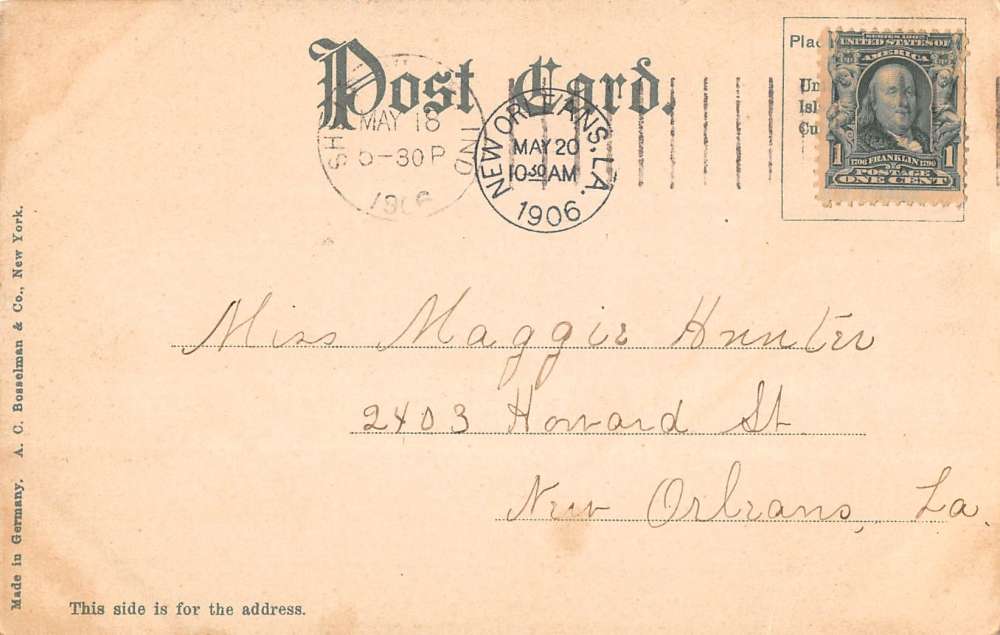 Post Card.
Place
Un
Isl
Cu
SERIES 1902
UNITED STATES OF
AMERICA
1 1706 FRANKLIN 1790 1
POSTAGE
ONE CENT
SH IND
MAY 18
5-30 P
1906
NEW ORLEANS, LA.
MAY 20
10 30 AM
1906
Miss Maggie Hunter
2403 Howard St.
New Orleans, La.
Made in Germany. A. C. Bosselman & Co., New York.
This side is for the address.